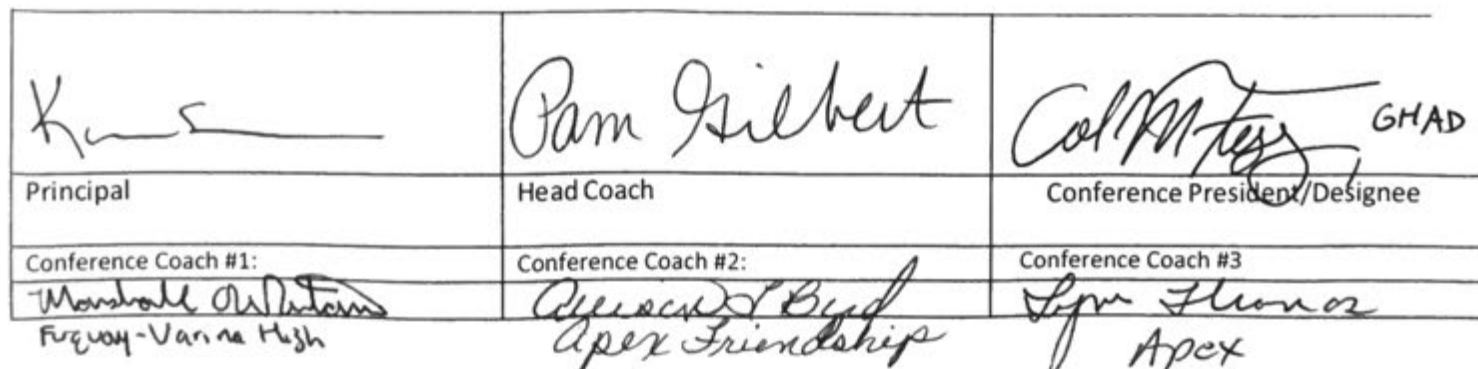 Pam Gilbert
GHAD
Principal
Head Coach
Conference President/Designee
Conference Coach #1:
Conference Coach #2:
Conference Coach #3
Marshall
Allison L Byrd
Lynn Thomas
Fuquay-Varina High
Apex Friendship
Apex